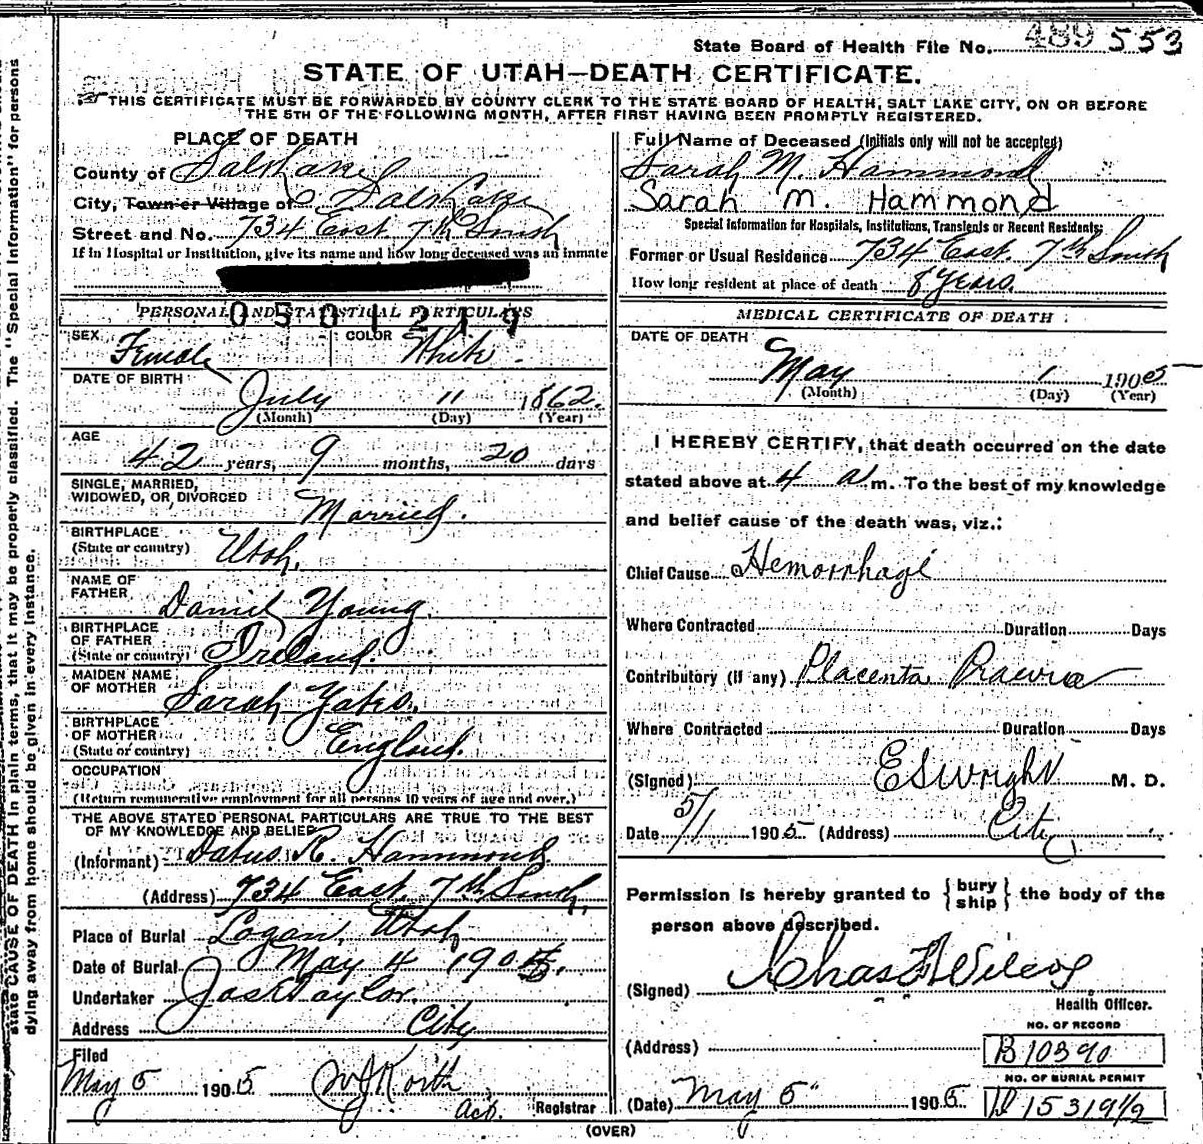 State Board of Health File No. 489 553
STATE OF UTAH—DEATH CERTIFICATE.
THIS CERTIFICATE MUST BE FORWARDED BY COUNTY CLERK TO THE STATE BOARD OF HEALTH, SALT LAKE CITY, ON OR BEFORE
THE 5TH OF THE FOLLOWING MONTH, AFTER FIRST HAVING BEEN PROMPTLY REGISTERED.
state CAUSE OF DEATH in plain terms, that it may be properly classified. The "Special Information" for persons
dying away from home should be given in every instance.
PLACE OF DEATH
County of Salt Lake
City, Town or Village of Salt Lake
Street and No. 734 East 7th South
If in Hospital or Institution, give its name and how long deceased was an inmate
PERSONAL AND STATISTICAL PARTICULARS
0501217
SEX Female COLOR White
DATE OF BIRTH July 11 1862
(Month) (Day) (Year)
AGE 42 years, 9 months, 20 days
SINGLE, MARRIED,
WIDOWED, OR DIVORCED Married.
BIRTHPLACE
(State or country) Utah.
NAME OF
FATHER Daniel Young.
BIRTHPLACE
OF FATHER
(State or country) Ireland.
MAIDEN NAME
OF MOTHER Sarah Yates.
BIRTHPLACE
OF MOTHER
(State or country) England.
OCCUPATION
(Return remunerative employment for all persons 10 years of age and over.)
THE ABOVE STATED PERSONAL PARTICULARS ARE TRUE TO THE BEST
OF MY KNOWLEDGE AND BELIEF
(Informant) Datus R. Hammond.
(Address) 734 East 7th South.
Place of Burial Logan, Utah
Date of Burial May 4 1905.
Undertaker Jos Taylor.
Address City
Filed
May 5 1905 Act. Registrar
(OVER)
Full Name of Deceased (Initials only will not be accepted)
Sarah M. Hammond
Sarah M. Hammond
Special Information for Hospitals, Institutions, Transients or Recent Residents:
Former or Usual Residence 734 East. 7th South
How long resident at place of death 8 Years.
MEDICAL CERTIFICATE OF DEATH
DATE OF DEATH
May 1 1905
(Month) (Day) (Year)
I HEREBY CERTIFY, that death occurred on the date
stated above at 4 a m. To the best of my knowledge
and belief cause of the death was, viz.:
Chief Cause Hemorrhage
Where Contracted Duration Days
Contributory (if any) Placenta Praevia
Where Contracted Duration Days
(Signed) E S Wright M. D.
Date 5/1 1905 (Address) City
Permission is hereby granted to { bury
ship } the body of the
person above described.
(Signed) Chas F Wilcox
Health Officer.
NO. OF RECORD
(Address) B10390
NO. OF BURIAL PERMIT
(Date) May 5" 1905. 15319 1/2